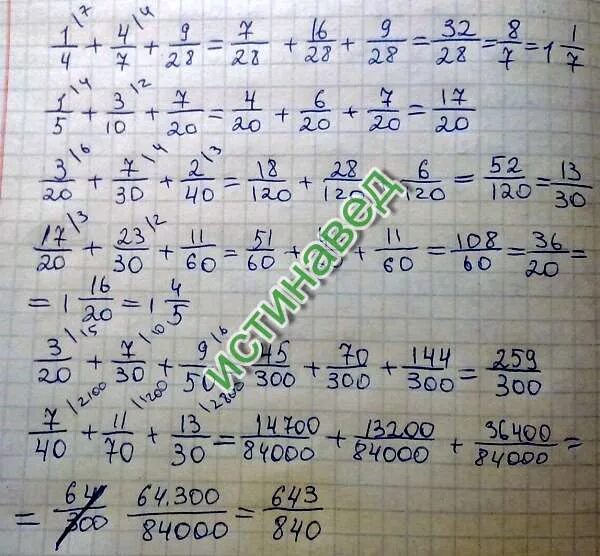 1/4 |7 + 4/7 |4 + 9/28 = 7/28 + 16/28 + 9/28 = 32/28 = 8/7 = 1 1/7
1/5 |4 + 3/10 |2 + 7/20 = 4/20 + 6/20 + 7/20 = 17/20
3/20 |6 + 7/30 |4 + 2/40 |3 = 18/120 + 28/120 6/120 = 52/120 = 13/30
17/20 |3 + 23/30 |2 + 11/60 = 51/60 + + 11/60 = 108/60 = 36/20 =
= 1 16/20 = 1 4/5
3/20 |15 + 7/30 |10 + 9/50 |6 45/300 + 70/300 + 144/300 = 259/300
7/40 |2100 + 11/70 |1200 + 13/30 |2800 = 14700/84000 + 13200/84000 + 36400/84000 =
= 64/300 64.300/84000 = 643/840
истинавед